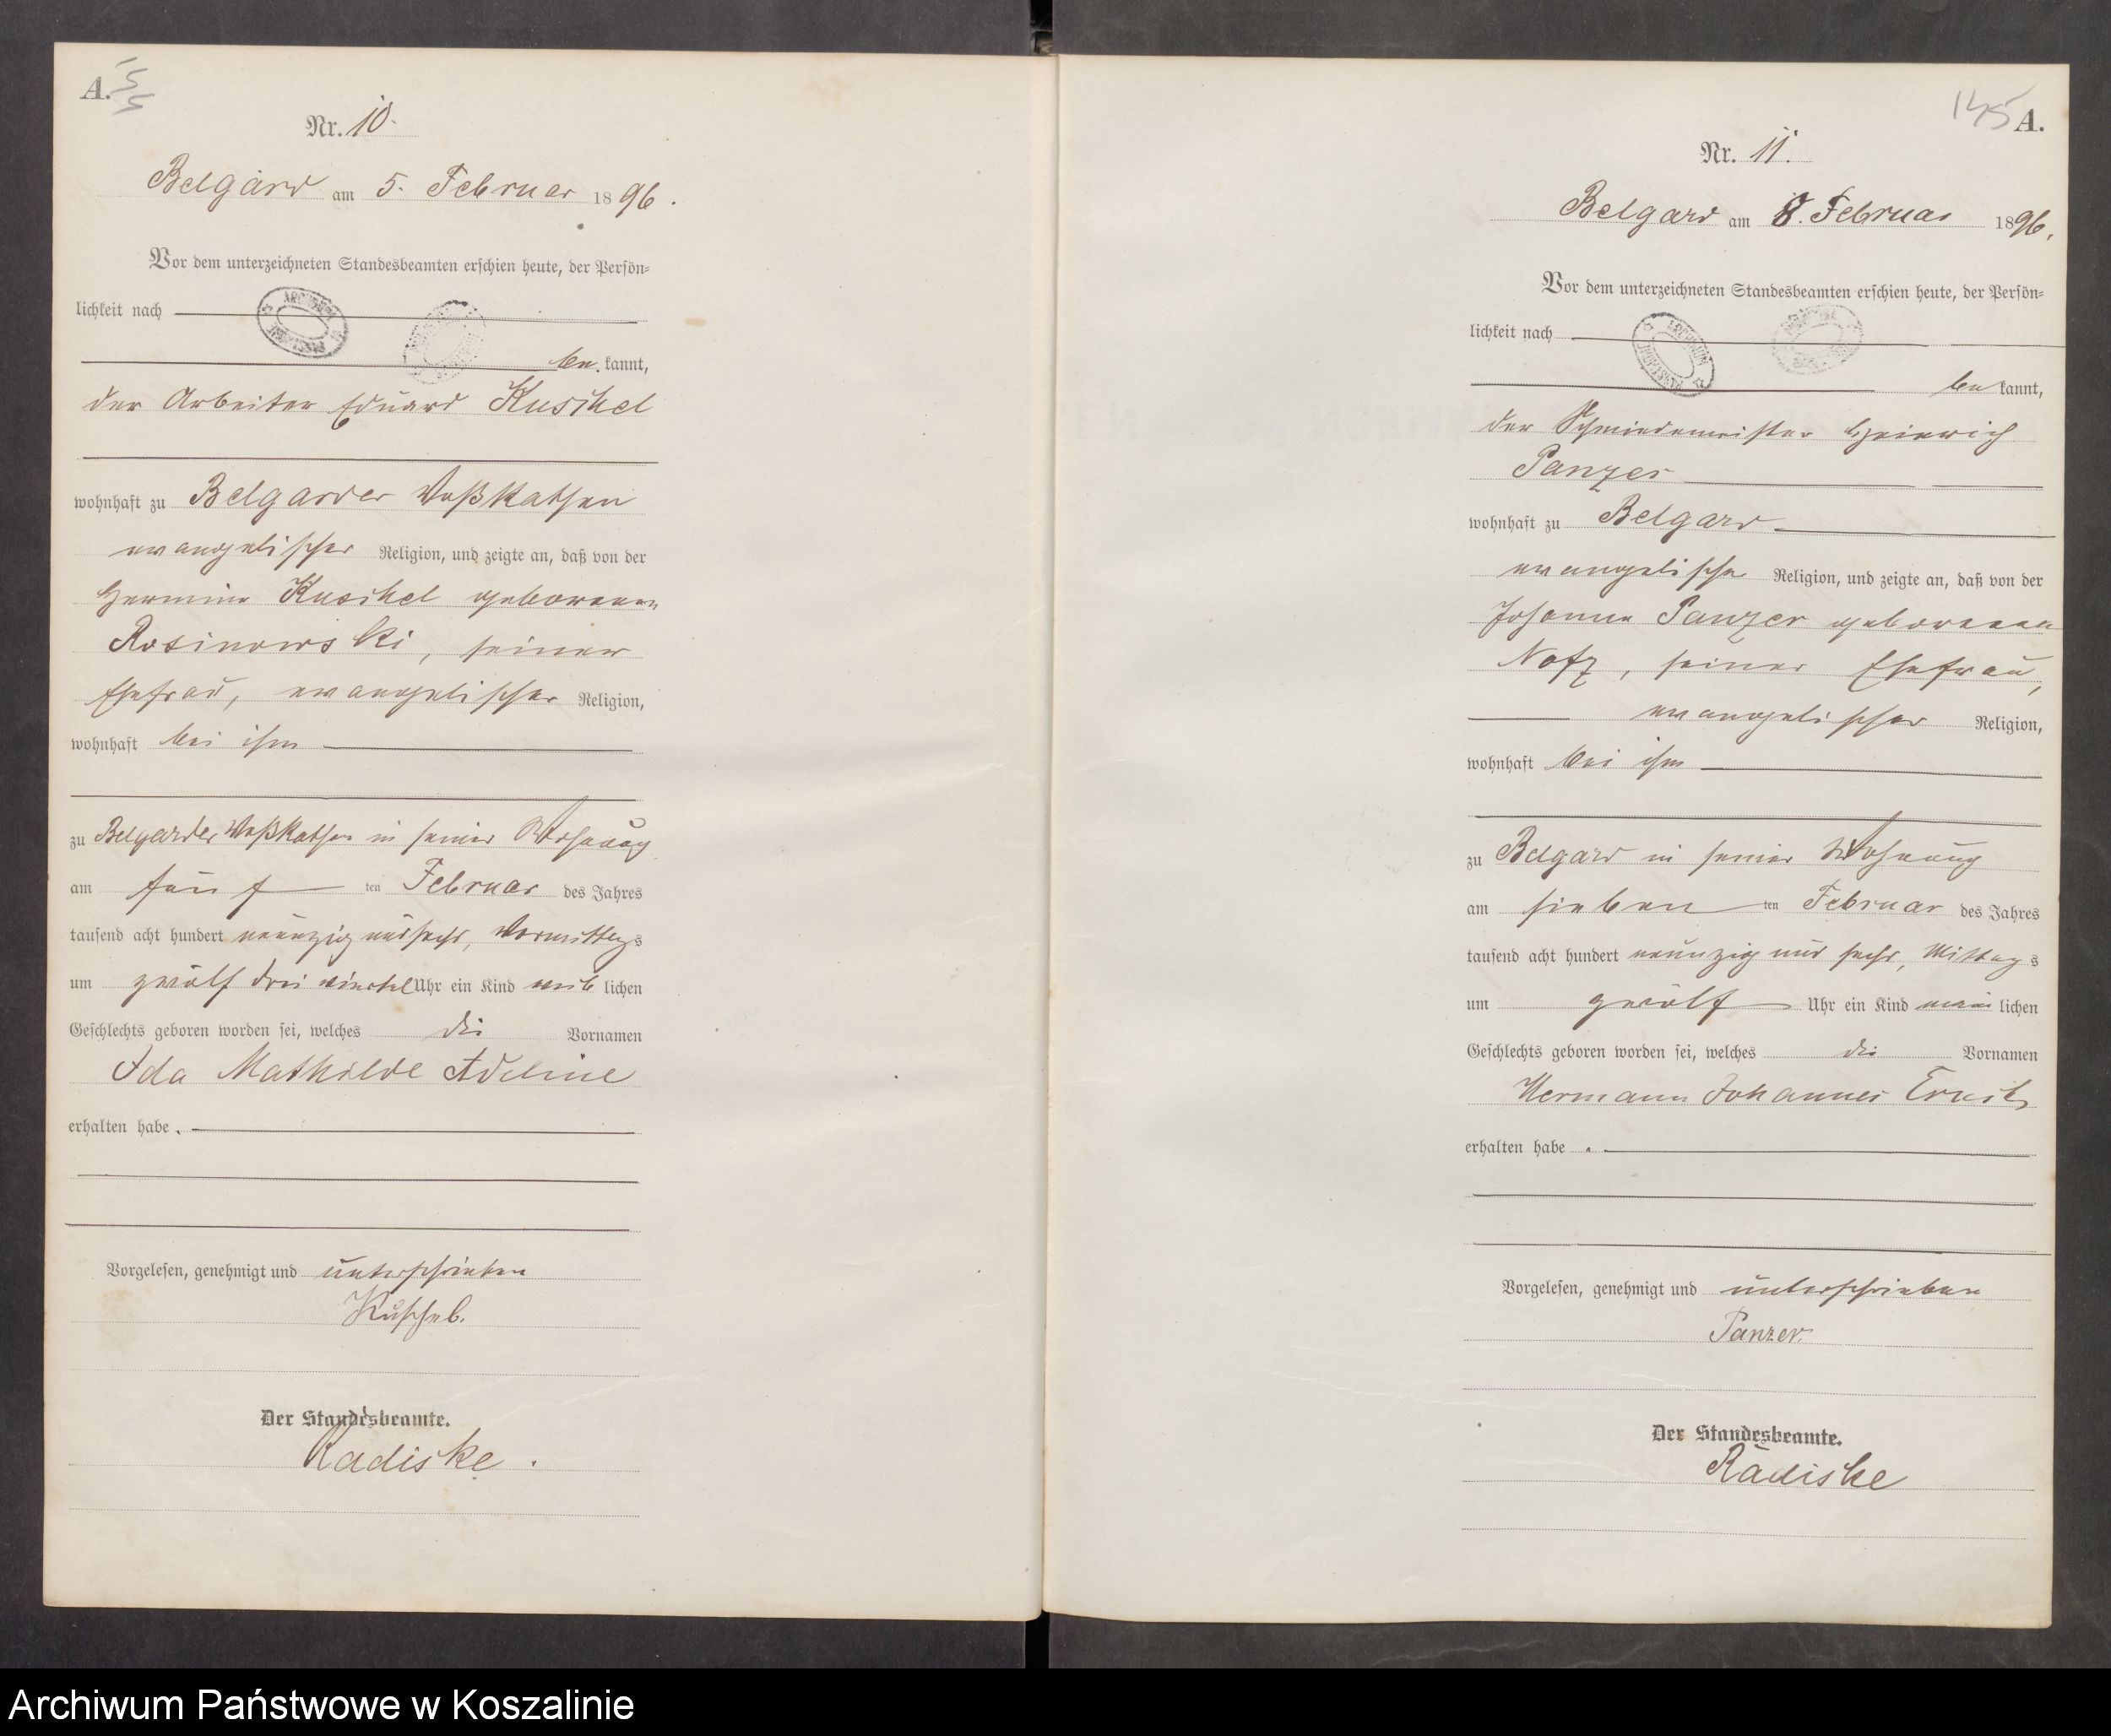 A. 55
Nr. 10.
Belgard am 5. Februar 1896.
Vor dem unterzeichneten Standesbeamten erschien heute, der Persön-
lichkeit nach
ARCHIWUM
be kannt,
der Arbeiter Eduard Kuschel
wohnhaft zu Belgarder Voßkathen
evangelischer Religion, und zeigte an, daß von der
Hermine Kuschel geborenen
Rosinowski, seiner
Ehefrau, evangelischer Religion,
wohnhaft bei ihm
zu Belgarder Voßkathen in seiner Wohnung
am fünf ten Februar des Jahres
tausend acht hundert neunzig und sechs, Vormittags
um zwölf drei viertel Uhr ein Kind weib lichen
Geschlechts geboren worden sei, welches die Vornamen
Ida Mathilde Adeline
erhalten habe.
Vorgelesen, genehmigt und unterschrieben
Kuschel.
Der Standesbeamte.
Radiske.
145 A.
Nr. 11.
Belgard am 8. Februar 1896.
Vor dem unterzeichneten Standesbeamten erschien heute, der Persön-
lichkeit nach
ARCHIWUM
be kannt,
der Schmiedemeister Heinrich
Panzer
wohnhaft zu Belgard
evangelische Religion, und zeigte an, daß von der
Johanna Panzer geborenen
seiner Ehefrau,
evangelischer Religion,
wohnhaft bei ihm
zu Belgard in seiner Wohnung
am sieben ten Februar des Jahres
tausend acht hundert neunzig und sechs, Mittags
um zwölf Uhr ein Kind männ lichen
Geschlechts geboren worden sei, welches die Vornamen
Hermann Johannes Ernst
erhalten habe.
Vorgelesen, genehmigt und unterschrieben
Panzer.
Der Standesbeamte.
Radiske
Archiwum Państwowe w Koszalinie